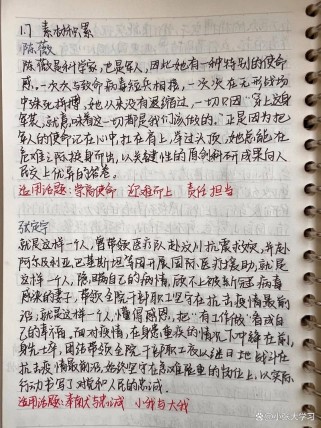 1.7 素材积累
陈薇
陈薇是科学家,也是军人,因此她有一种特别的使命
感。一次次与致命病毒短兵相接,一次次在无形战场
中殊死拼搏,她从来没有退缩过,一切只因"穿上这身
军装,就意味着这一切都是我们该做的。"正是因为把
军人的使命记在心中,扛在肩上,举过头顶,她总能在
危难之际挺身而出,以关键性的原创科研成果向人
民交上优异的答卷。
适用话题:崇高使命 迎难而上 责任担当
张定宇
就是这样一个人,曾带领医疗队赴汶川抗震救灾,并赴
阿尔及利亚,巴基斯坦等国开展国际医疗援助,就是
这样一个人,隐瞒自己的病情,顾不上被新冠病毒
感染的妻子,带领全院干部职工坚守在抗击疫情最前
沿;就是这样一个人,懂得感恩,把"有工作做"看成自
己的幸福。面对疫情,在身患重疾的情况下冲锋在前,
身先士卒,团结带领全院干部职工夜以继日地战斗在
抗击疫情最前沿,始终坚守在急难险重的岗位上,以实际
行动书写了对党和人民的忠诚。
适用话题:奉献与忠诚 小我与大我
小水大学习